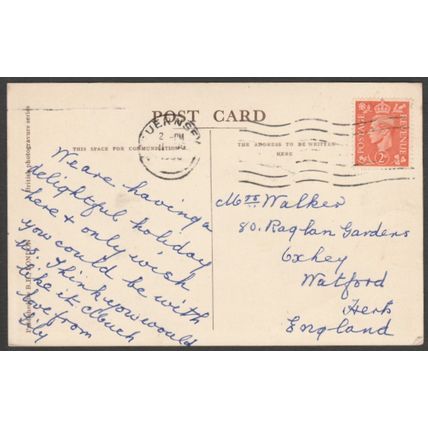 POST CARD
THIS SPACE FOR COMMUNICATION
THE ADDRESS TO BE WRITTEN
HERE
GUERNSEY
2 - PM
POSTAGE
REVENUE
2D
We are having a
delightful holiday
here & only wish
you could be with
us. I think you would
like it Much
Love from
Mrs Walker
80. Raglan Gardens
Oxhey
Watford
Herts
England
British photogravure series